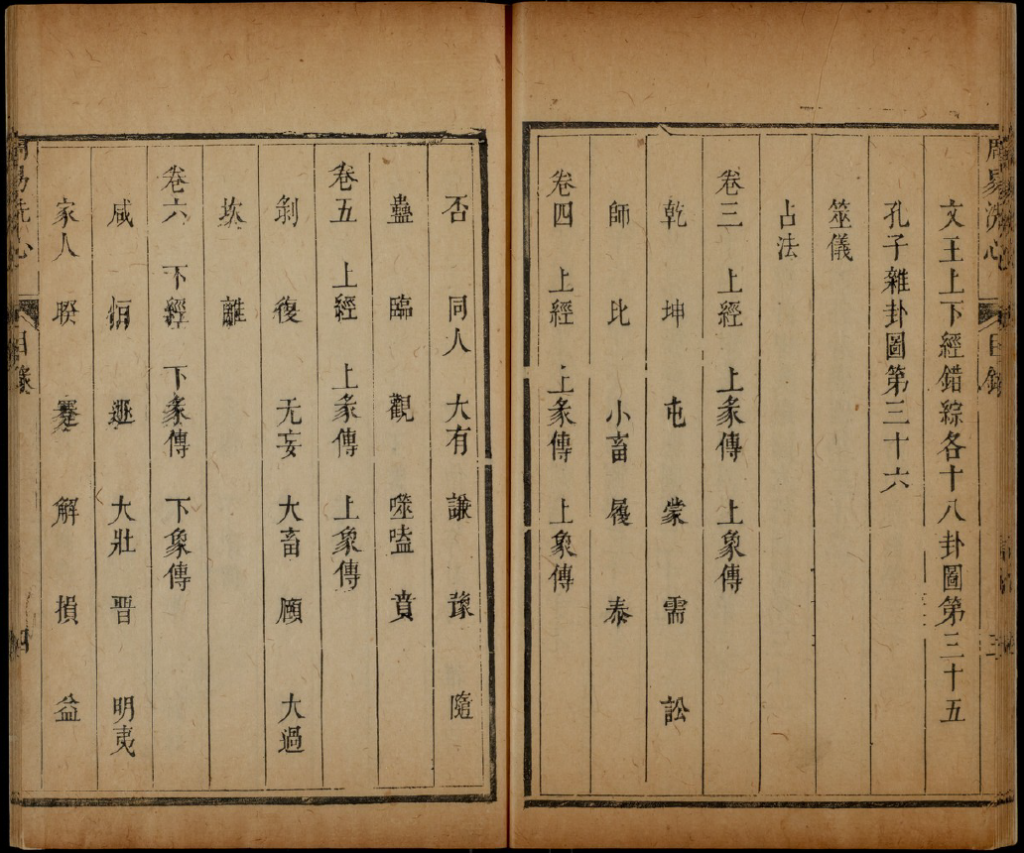 周易洗心
目錄
三
文王上下經錯綜各十八卦圖第三十五
孔子雜卦圖第三十六
筮儀
占法
卷三 上經 上彖傳 上象傳
乾 坤 屯 蒙 需 訟
師 比 小畜 履 泰
卷四 上經 上彖傳 上象傳
否 同人 大有 謙 豫 隨
蠱 臨 觀 噬嗑 賁
卷五 上經 上彖傳 上象傳
剝 復 无妄 大畜 頤 大過
坎 離
卷六 下經 下彖傳 下象傳
咸 恒 遯 大壯 晉 明夷
家人 睽 蹇 解 損 益
周易洗心
目錄
四